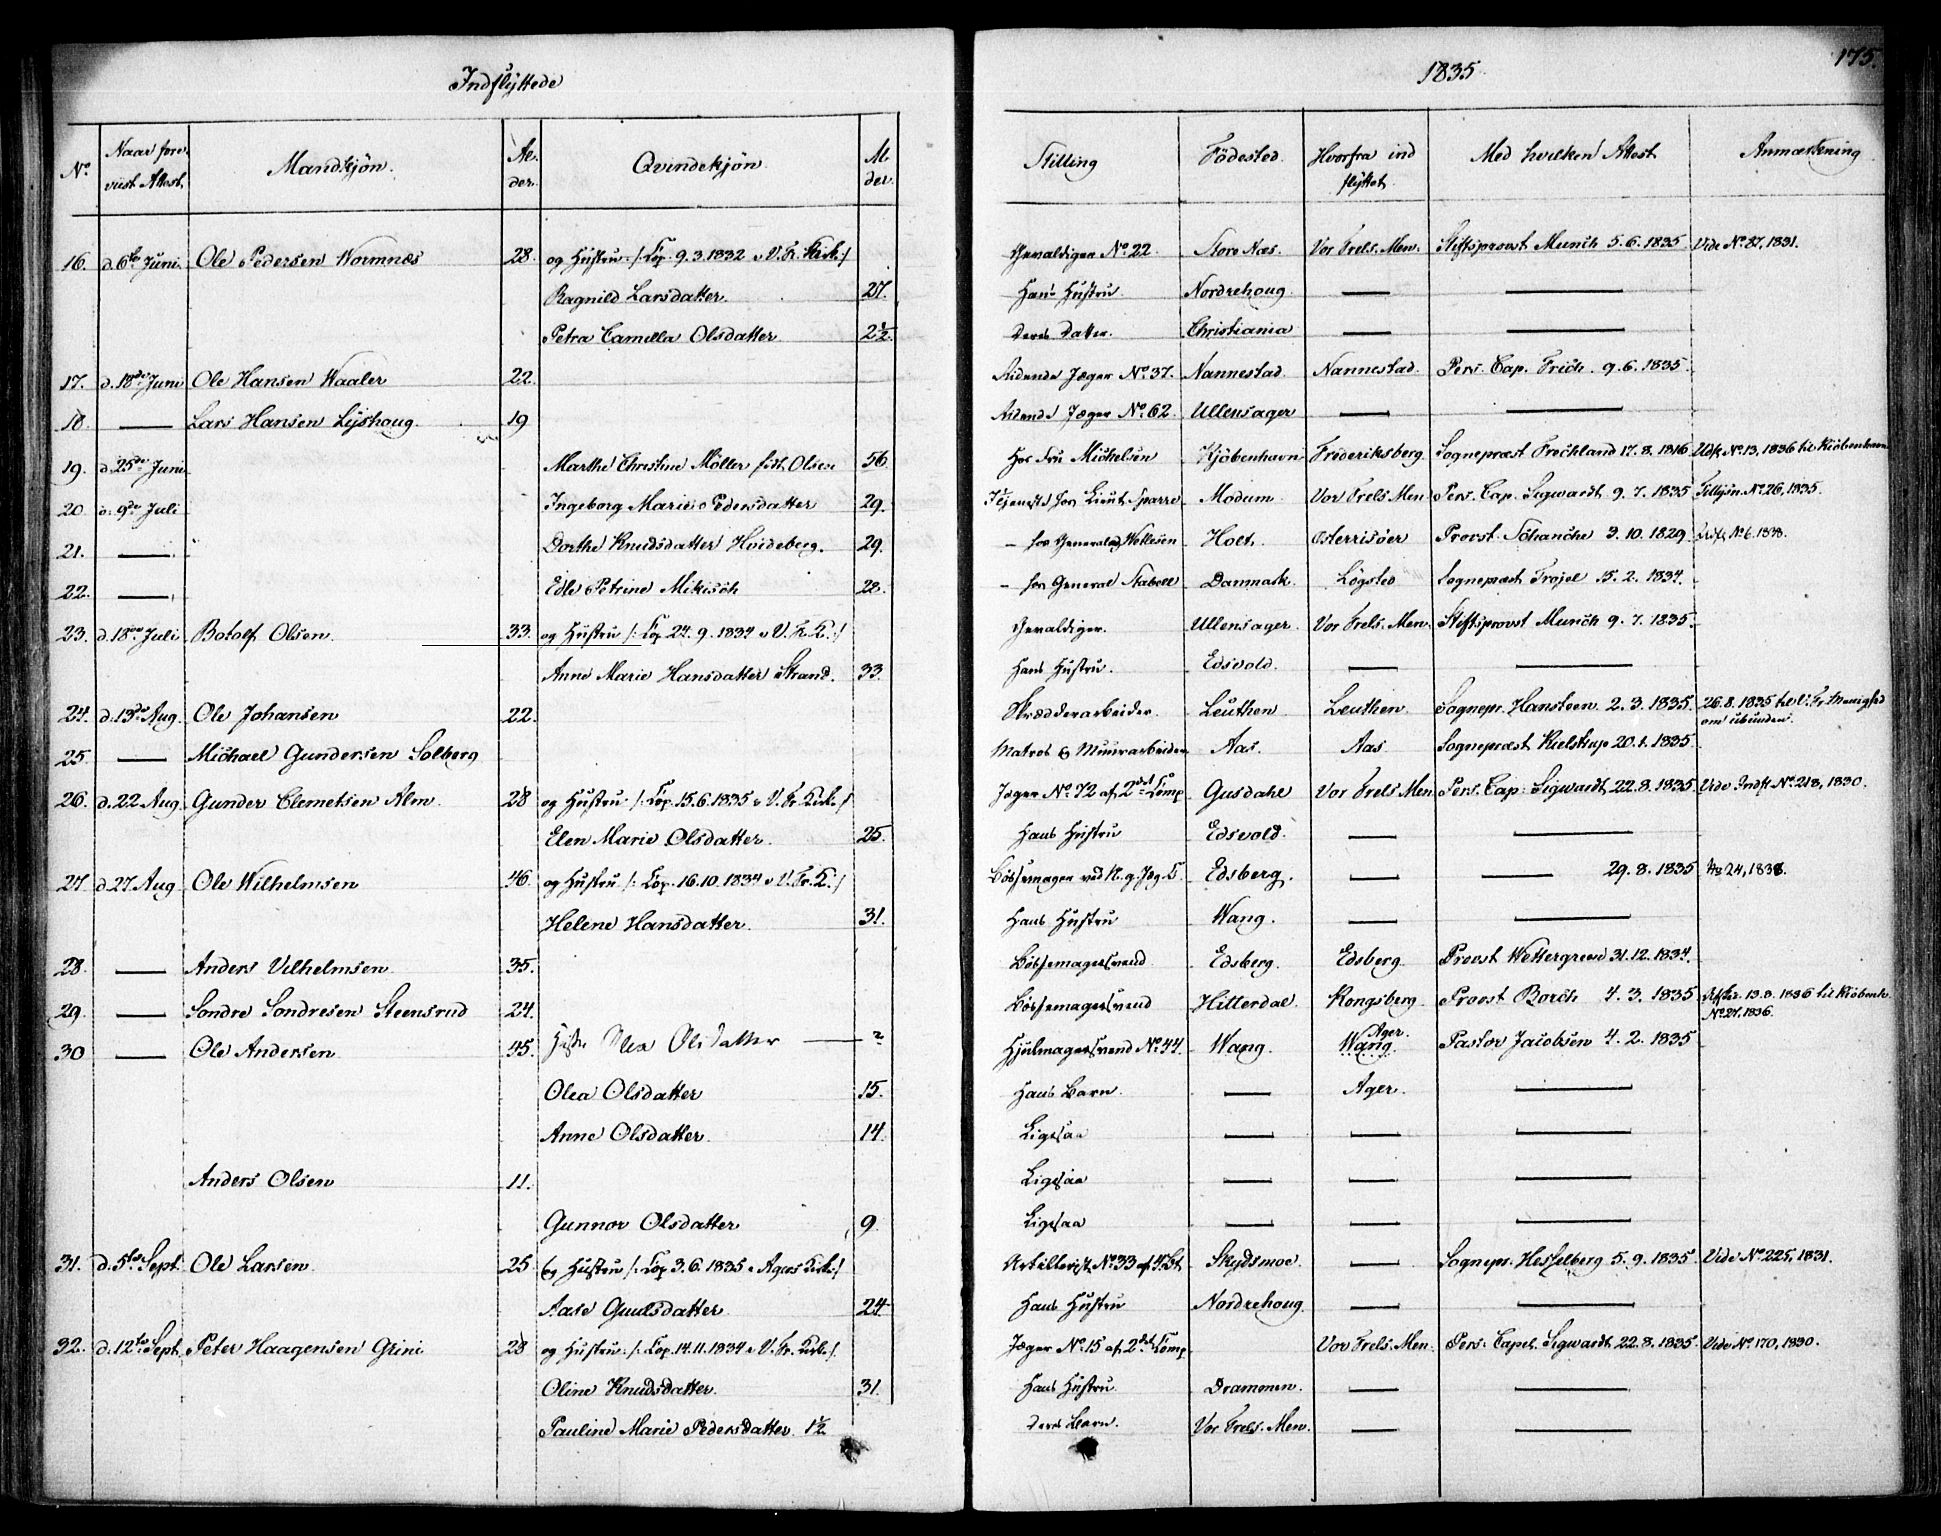 Indflyttede
1835
175.
No | Naar fore- viist Attest. | Mandkjön. | Al- der. | Qvindekjön. | Al der. | Stilling | Födested. | Hvorfra ind flyttet. | Med hvilken Attest | Anmærkning
16. | d. 6te Juni. | Ole Pedersen Wormnæs | 28. | og Hustru /: Cop. 9.3.1832 i V. Fr. Kirk :/ | | Gevaldiger No 22. | Store Næs. | Vor Frels. Men. | Stiftsprovst Munch 5.6.1835 | Vide No. 87, 1831.
Ragnild Larsdatter. | 27. | Hans Hustru. | Nordrehoug. | — | —
Petra Camilla Olsdatter | 2½. | Deres Datter. | Christiania | — | —
17. | d. 18de Juni | Ole Hansen Waaler | 22. | | | Ridende Jæger No. 37. | Nannestad. | Nannestad. | Pers. Cap. Frich. 9.6.1835.
18. | — | Lars Hansen Lyshoug. | 19 | | | Ridende Jæger No. 62. | Ullensager | — | —
19. | d. 25de Juni | | | Marthe Christine Möller föd. Olsen | 56. | Hos Fru Michelsen | Kjöbenhavn | Frederiksberg. | Sognepræst Frochland 17.8.1816 | Udfl. No. 13, 1836 til Kiöbenhavn
20. | d. 9de Juli | | | Ingeborg Marie Pedersdatter | 29. | Tjeneste hos Lieut. Sparre | Modum. | Vor Frels. Men. | Pers. Cap. Sigwardt 9.7.1835 | Tillysn. No. 26, 1835.
21. | — | | | Dorthe Knudsdatter Hoideberg. | 29. | – hos General | Holt. | Osterrisöer | Provst Schanche 3.10.1829 | Udfl. No. 6. 1838.
22. | — | | | Edle Petrine Mikisch | 28. | – hos General Stabell | Danmark. | Lögsted | Sognepræst Trojel 15.2.1834.
23. | d. 18de Juli | Botolf Olsen. | 33. | og Hustru /: Cop. 24.9.1834 i V. Fr. K. :/ | | Gevaldiger. | Ullensager. | Vor Frels. Men. | Stiftsprovst Munch 9.7.1835.
Anne Marie Hansdatter Strand. | 33. | Hans Hustru. | Edsvold. | — | —
24. | d. 13de Aug. | Ole Johansen | 22. | | | Skrædderarbeider. | Leuthen. | Leuthen. | Sognepr. Hansteen. 2.3.1835. | 26.8.1835 til V. Fr. Menighed
25. | — | Michael Gundersen Solberg | | | | Matros & Muurarbeider | Aas. | Aas. | Sognepræst Kielstrup 20.1.1835.
26. | d. 22 Aug. | Gunder Clemetsen Alm. | 28 | og Hustru /: Cop. 15.6.1835 i V. Fr. Kirke :/ | | Jæger No. 72 af 2det Comp. | Gusdahl | Vor Frels Men. | Pers. Cap. Sigwardt. 22.8.1835. | Vide Indfl. No. 218, 1830.
Elen Marie Olsdatter. | 25. | Hans Hustru | Edsvold. | — | —
27. | d. 27 Aug. | Ole Wilhelmsen | 46. | og Hustru /: Cop. 16.10.1834 i V. Fr. K. :/ | | Bössemager ved N. g. Jæg. C. | Edsberg. | — | — 29.8.1835 | No 24, 1838.
Helene Hansdatter. | 31. | Hans Hustru | Wang. | — | —
28. | — | Anders Vilhelmsen. | 35. | | | Bössemagersvend. | Edsberg. | Edsberg. | Provst Wettergreen 31.12.1834.
29. | — | Sondre Sondresen Steensrud | 24. | | | Bössemagersvend | Hitterdal. | Kongsberg. | Provst Borch 4.3.1835 | 13.8.1836 til Kiöbenh. No. 27. 1836.
30 | — | Ole Andersen | 45. | Hustr. Olea Olsdatter — | ? | Hjulmagersvend No. 44. | Wang. | Ager. Wang. | Pastor Jacobsen 4.2.1835
Olea Olsdatter | 15. | Hans Barn. | — | Ager. | —
Anne Olsdatter. | 14. | Ligesaa | — | — | —
Anders Olsen | 11. | | | Ligesaa | — | — | —
Gunnor Olsdatter | 9. | Ligesaa | — | — | —
31. | d. 5te Sept. | Ole Larsen. | 25. | og Hustru /: Cop. 3.6.1835 i Agers Kirke :/ | | Artillerist No. 33 af 4. Bt. | Skydsmoe. | — | Sognepr. Hesselberg 5.9.1835. | Vide No. 225, 1831.
Aase Gulsdatter | 24. | Hans Hustru | Nordrehoug. | — | —
32. | d. 12te Sept. | Peter Haagensen Grini | 28 | og Hustru /: Cop. 14.11.1834 i V. Fr. Kirke :/ | | Jæger No. 15 af 2det Comp. | | Vor Frels. Men. | Pers. Capel. Sigwardt 22.8.1835. | Vide No. 170, 1830.
Oline Knudsdatter. | 31. | Hans Hustru. | Drammen. | — | —
Pauline Marie Pedersdatter. | 1½ | Deres Barn. | Vor Frels. Men. | — | —